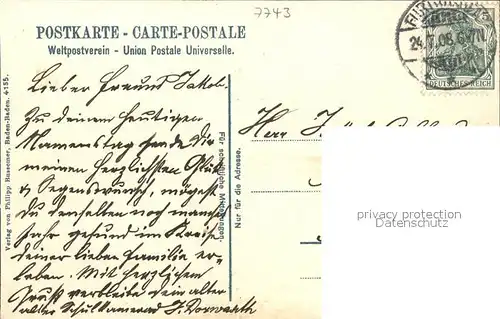 7743
POSTKARTE - CARTE-POSTALE
Weltpostverein - Union Postale Universelle.
Lieber Freund Jakob.
Zu deinem heutigen
Namenstag sende Dir
meinen herzlichsten Glück
& Segenswunsch, mögest
Du denselben noch manches
Jahr gesund im Kreise
deiner lieben Familie er-
leben. Mit herzlichem
Gruß verbleibe dein alter
alter Schulkamerad J. Dorwarth
Verlag von Philipp Bussemer, Baden-Baden. 4155.
Für schriftliche Mitteilungen.
Nur für die Adresse.
Herr
DEUTSCHES REICH
5
privacy protection
Datenschutz